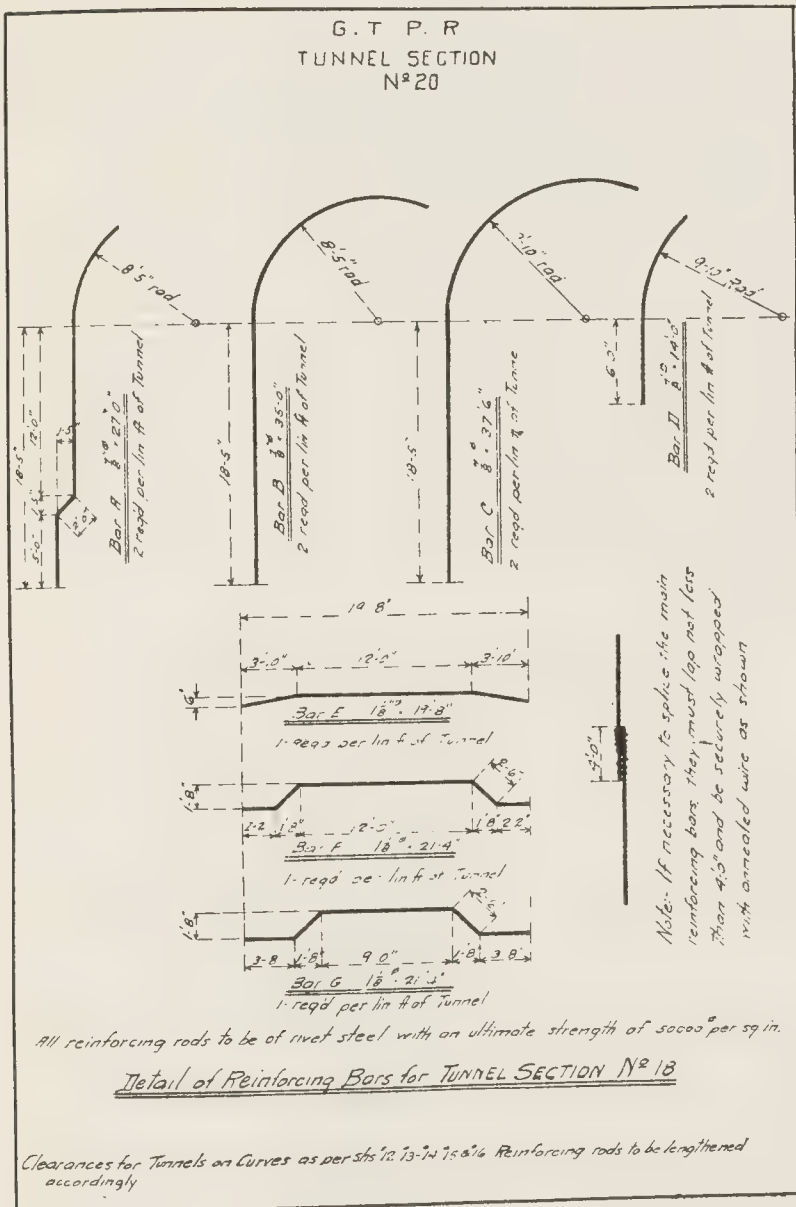 G.T P.R
TUNNEL SECTION
Nº 20
8'-5" rad
8'-5" rad
7'-10" rad
9'-10" Rad
18'-5"
12'-0"
1'-5"
5'-0"
Bar A 7/8"ø - 27'0"
2 reqd per lin ft of Tunnel
18'-5"
Bar B 7/8"ø - 35'-0"
2 reqd per lin ft of Tunnel
18'-5"
Bar C 7/8"ø - 37'6"
2 reqd per lin ft of Tunne
6'-0"
Bar D 7/8"ø - 14'-0"
2 reqd per lin ft of Tunnel
19'8"
3'-10" 12'-0" 3'-10"
6"
Bar E 1 1/8"ø - 19'-8"
1- reqd per lin ft of Tunnel
1'-8"
2'-2 1'8" 12'-0" 1'8" 2'2"
Bar F 1 1/8"ø - 21'-4"
1- reqd per lin ft of Tunnel
1'-8"
3'-8 1'-8" 9'0" 1'-8" 3'8"
Bar G 1 1/8"ø - 21'-4"
1- reqd per lin ft of Tunnel
4'-0"
Note:- If necessary to splice the main
reinforcing bars, they must lap not less
than 4'-0" and be securely wrapped
with annealed wire as shown
All reinforcing rods to be of rivet steel with an ultimate strength of 50000# per sq in.
Detail of Reinforcing Bars for TUNNEL SECTION Nº 18
Clearances for Tunnels on Curves as per shs #12 #13-#14 #15 & #16 Reinforcing rods to be lengthened
accordingly